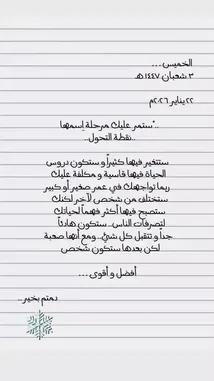 الخميس ...
٣ شعبان ١٤٤٧ هـ
٢٢ يناير ٢٠٢٦م
"ستمر عليك مرحلة إسمها..
نقطة التحول..
ستتغير فيها كثيراً و ستكون دروس
الحياة فيها قاسية و مكلفة عليك
ربما تواجهك في عمر صغير أو كبير
ستختلف من شخص لآخر لكنك
ستصبح فيها أكثر فهماً لحياتك
لتصرفات الناس.. ستكون هادئاً
جداً و تتقبل كل شئ.. ومع أنها صعبة
لكن بعدها ستكون شخص
أفضل و أقوى...
دمتم بخير..